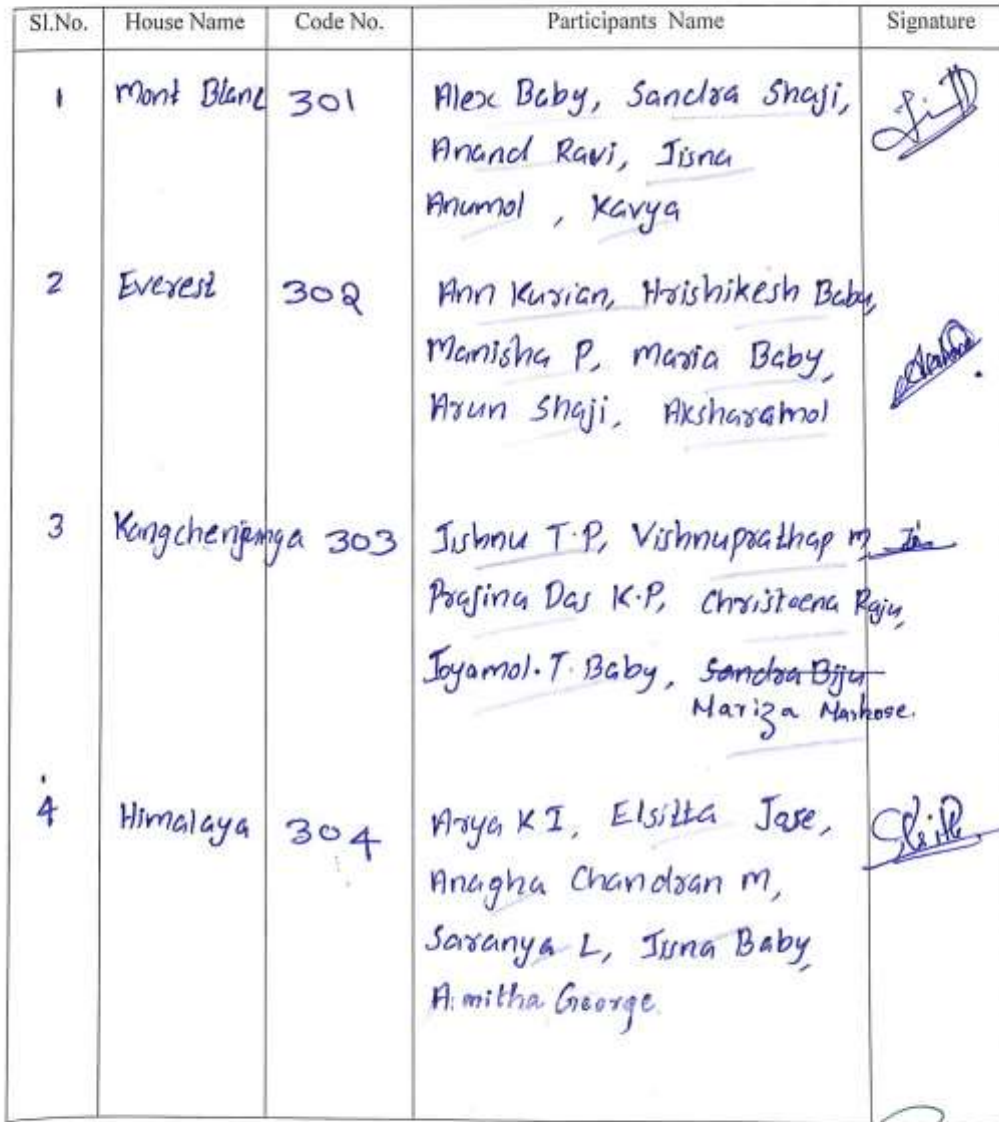 Sl.No. House Name Code No. Participants Name Signature
1 Mont Blanc 301 Alex Baby, Sandra Shaji,
Anand Ravi, Jisna
Anumol , Kavya
2 Everest 302 Ann Kurian, Hrishikesh Babu,
Manisha P, Maria Baby,
Arun Shaji, Aksharamol
3 Kangchenjunga 303 Jishnu T.P, Vishnuprathap M
Prajina Das K.P, Christeena Raju,
Joyamol.T.Baby, Sandra Biju
Mariza Markose.
4 Himalaya 304 Arya K I, Elsitta Jose,
Anagha Chandran M,
Saranya L, Jisna Baby,
Amitha George.